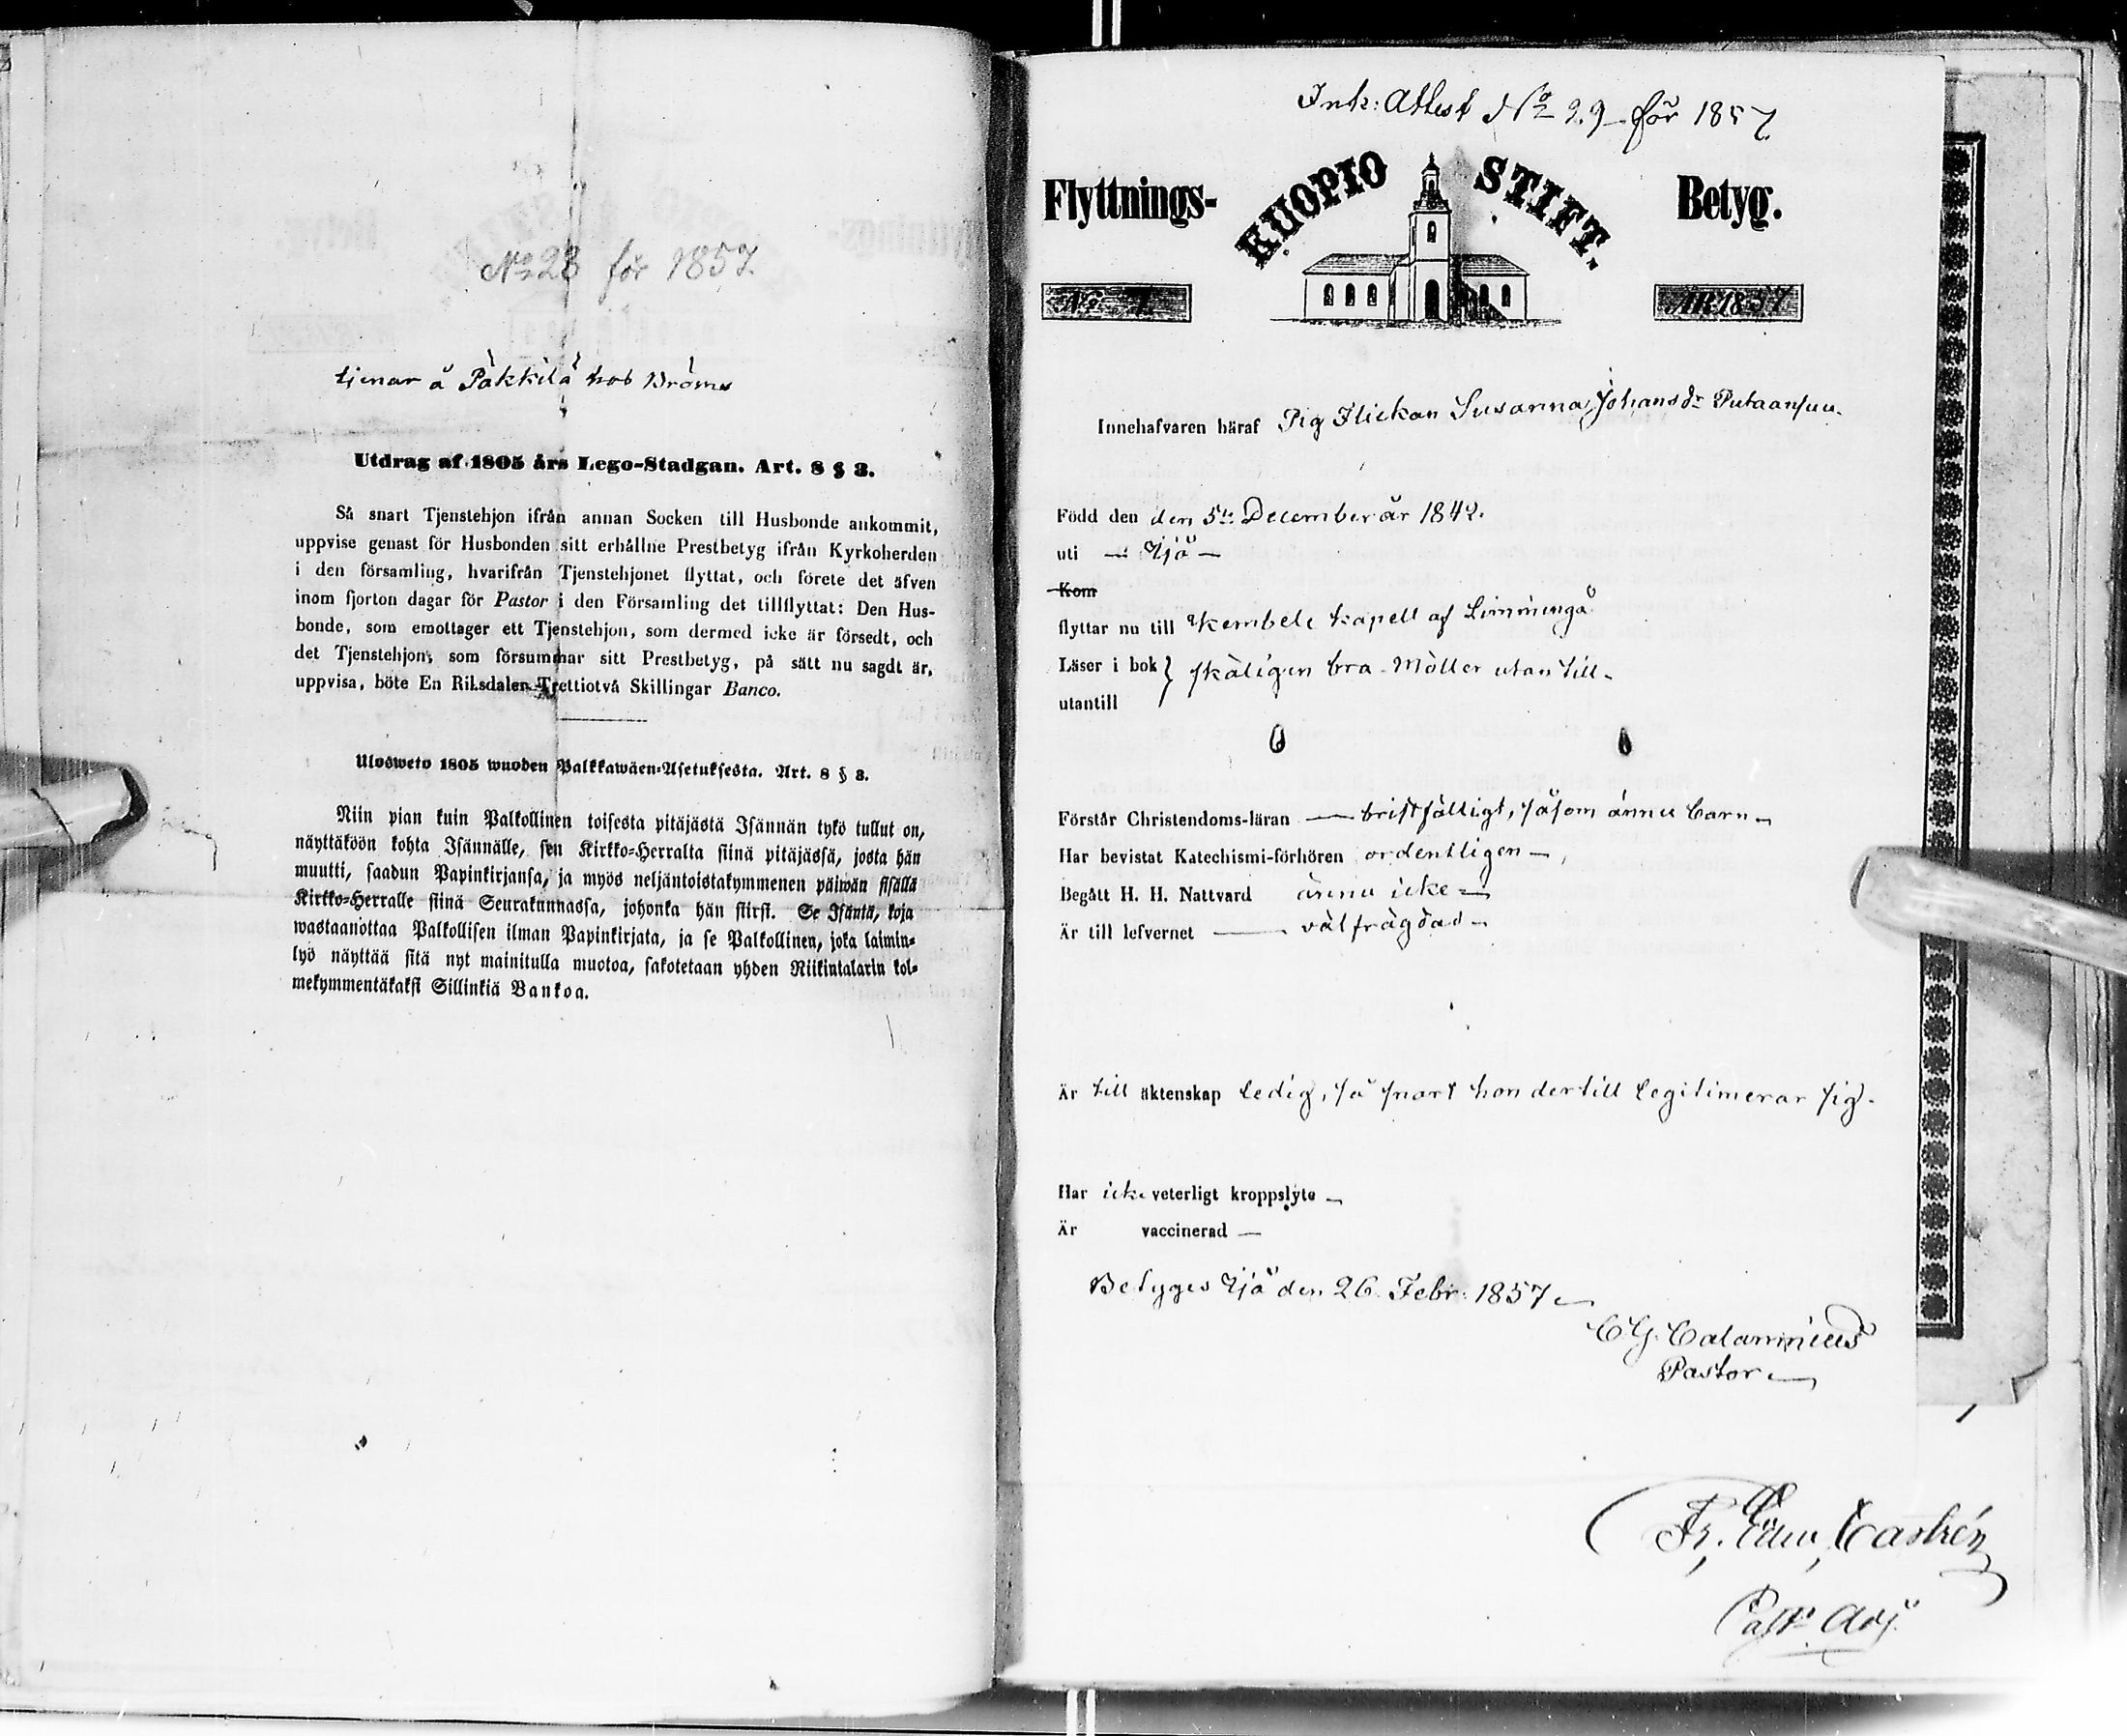 No 28 för 1857.
tjenar å Päkkilä hos Bröms
Utdrag af 1805 års Lego-Stadgan. Art. 8 § 3.
Så snart Tjenstehjon ifrån annan Socken till Husbonde ankommit,
uppvise genast för Husbonden sitt erhållne Prestbetyg ifrån Kyrkoherden
i den församling, hvarifrån Tjenstehjonet flyttat, och förete det äfven
inom fjorton dagar för Pastor i den Församling det tillflyttat: Den Hus-
bonde, som emottager ett Tjenstehjon, som dermed icke är försedt, och
det Tjenstehjon, som försummar sitt Prestbetyg, på sätt nu sagdt är,
uppvisa, böte En Riksdaler Trettiotvå Skillingar Banco.
Ulosweto 1805 wuoden Palkkawäen-Asetuksesta. Art. 8 § 3.
Niin pian kuin Palkollinen toisesta pitäjästä Isännän tykö tullut on,
näyttäköön kohta Isännälle, sen Kirkko-Herralta siinä pitäjässä, josta hän
muutti, saadun Papinkirjansa, ja myös neljäntoistakymmenen päiwän sisällä
Kirkko-Herralle siinä Seurakunnassa, johonka hän siirsi. Se Isäntä, koja
wastaanottaa Palkollisen ilman Papinkirjata, ja se Palkollinen, joka laimin-
lyö näyttää sitä nyt mainitulla muotoa, sakotetaan yhden Riikintalarin kol-
mekymmentäkaksi Sillinkiä Bankoa.
Ink: Attest No 29 för 1857
Flyttnings- KUOPIO STIFT. Betyg.
No 7. ÅR 1857
Innehafvaren häraf Pig Flickan Susanna Johansdr Putaansuu.
Född den den 5te December år 1842.
uti – Ijo –
Kom
flyttar nu till Kembele kapell af Limminga
Läser i bok } skäligen bra. Möller utan till.
utantill
Förstår Christendoms-läran — bristfälligt, såsom ännu barn –
Har bevistat Katechismi-förhören ordentligen –
Begått H. H. Nattvard ännu icke –
Är till lefvernet — välfrägdad –
Är till äktenskap ledig, så snart hon dertill legitimerar sig.
Har icke veterligt kroppslyte –
Är vaccinerad —
Betygas Ijo den 26. Febr: 1857
C G. Calamnius
Pastor
Fr. Edw, Castrén
Pastr. Adj.